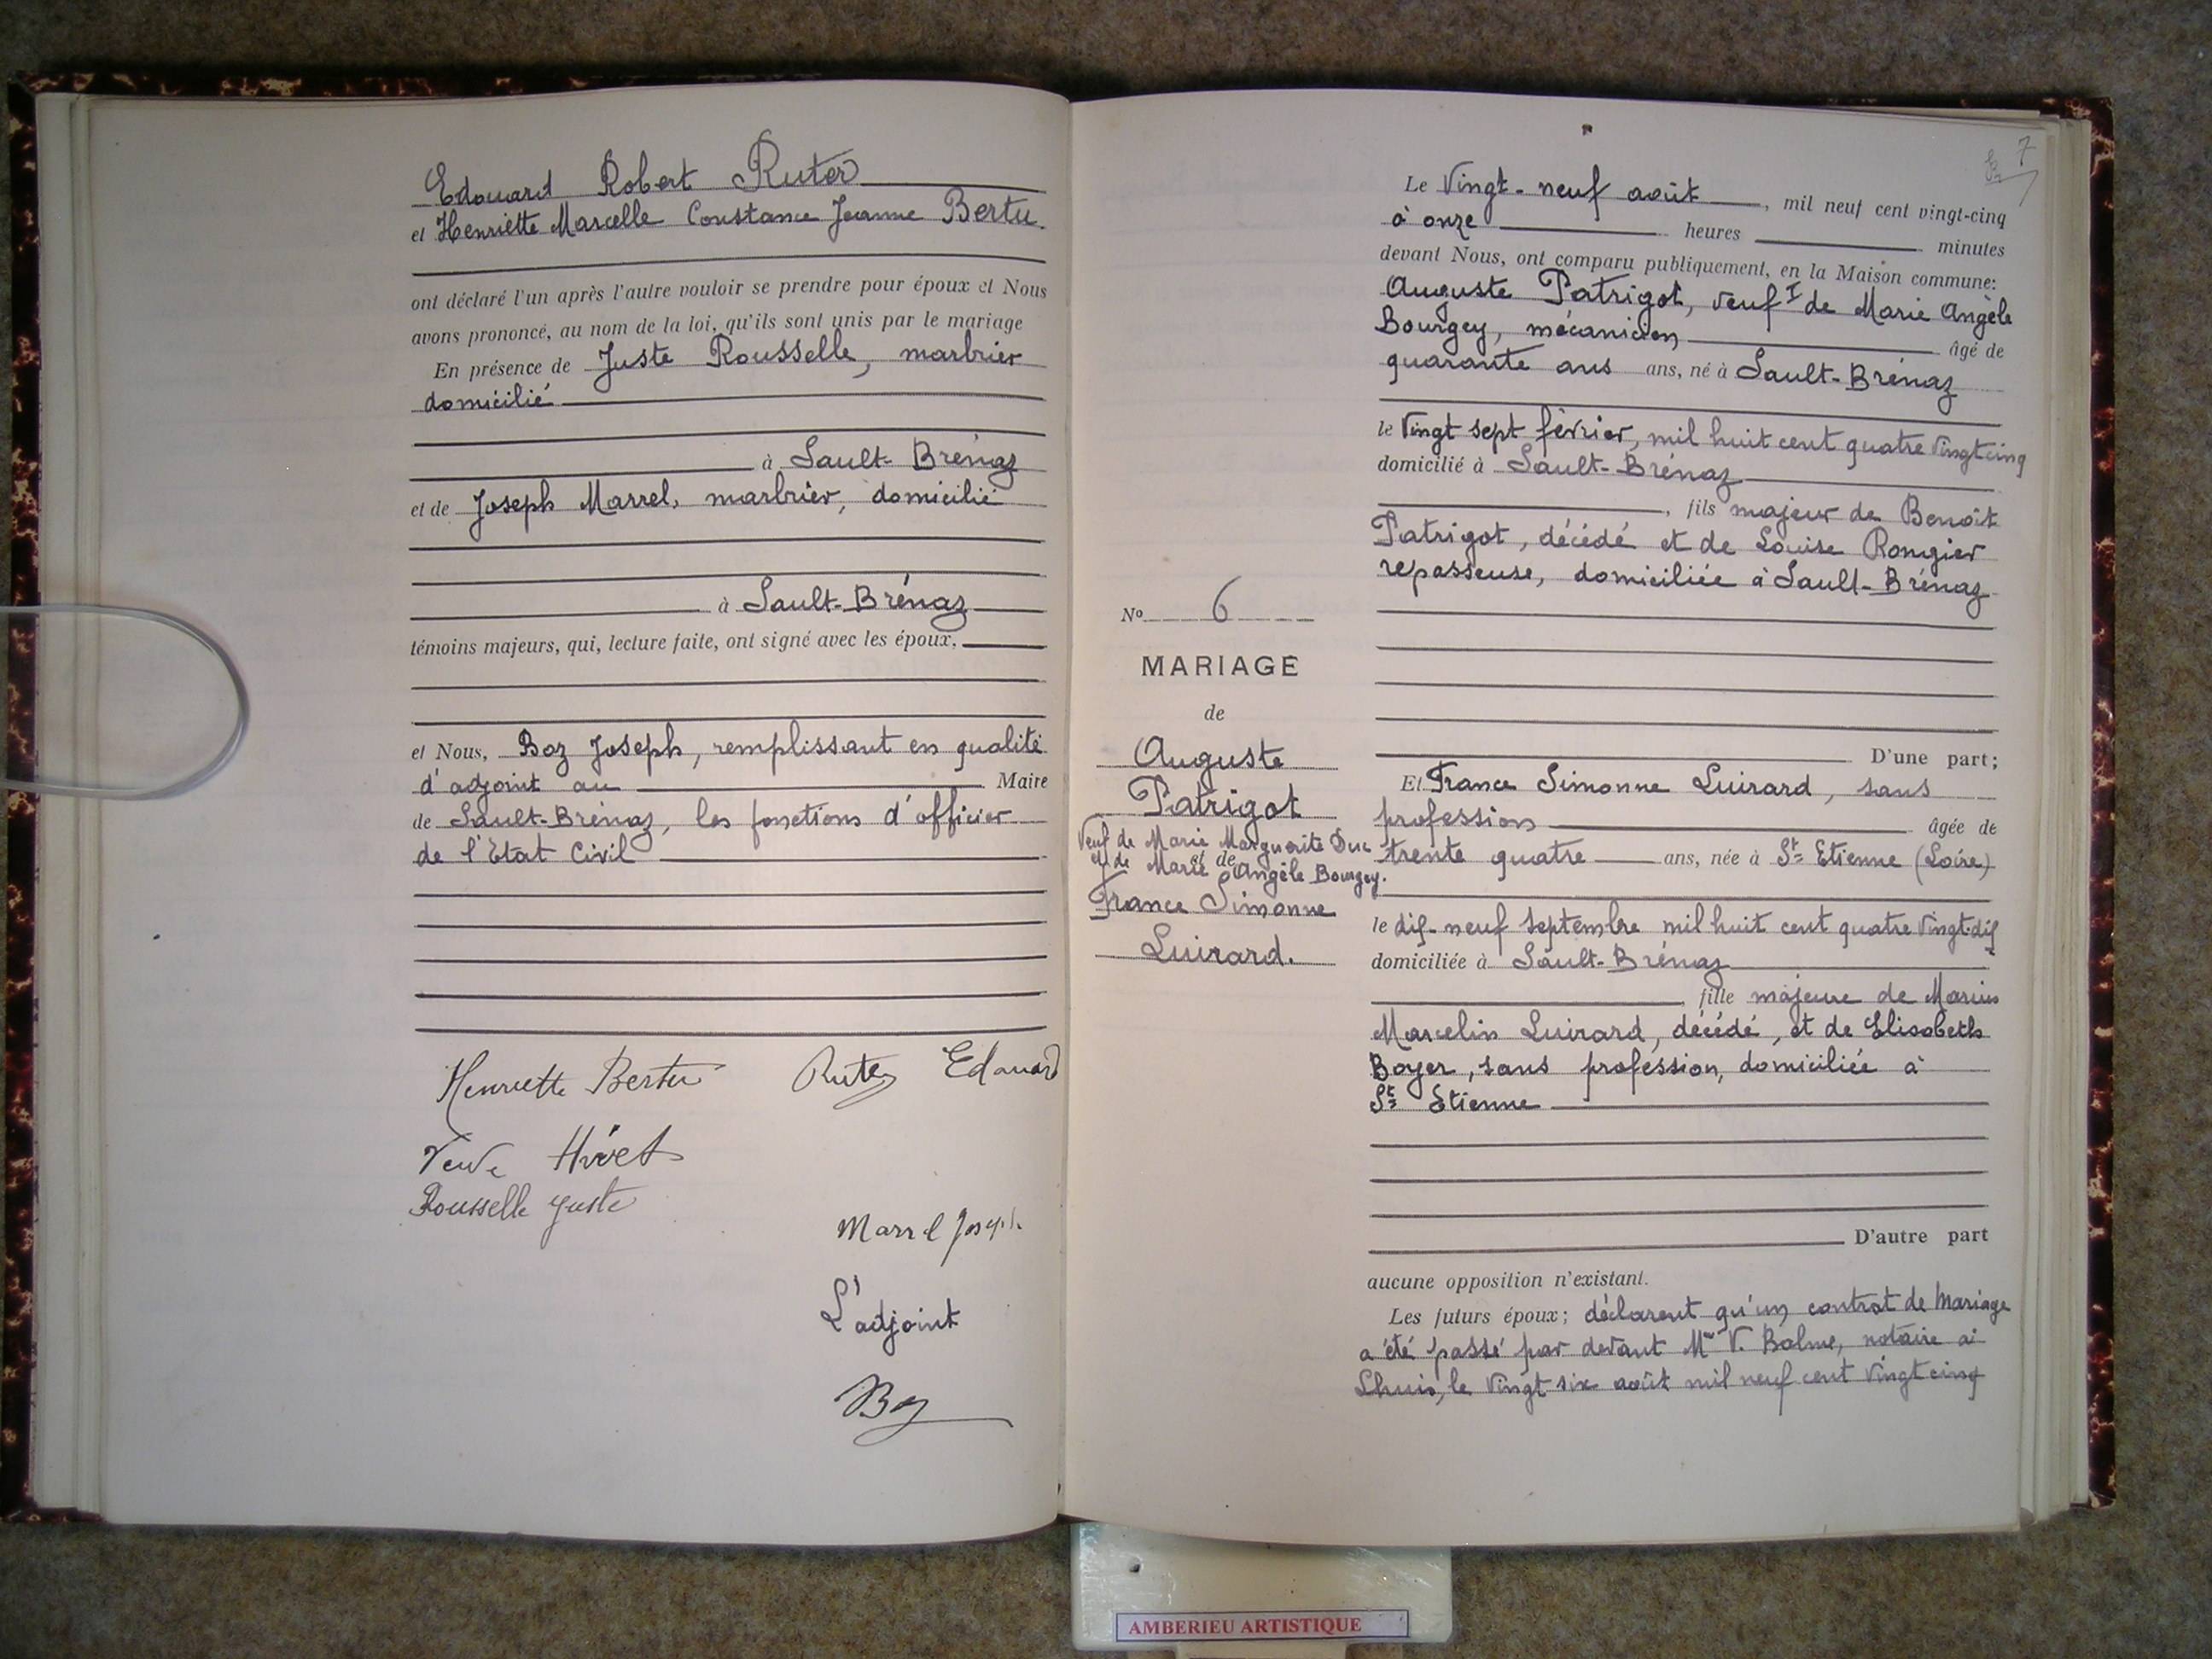 Edouard Robert Ruter
et Henriette Marcelle Constance Jeanne Bertu.
ont déclaré l'un après l'autre vouloir se prendre pour époux et Nous
avons prononcé, au nom de la loi, qu'ils sont unis par le mariage
En présence de Juste Rousselle, marbrier
domicilié
à Sault-Brénaz
et de Joseph Marrel, marbrier, domicilié
à Sault-Brénaz
témoins majeurs, qui, lecture faite, ont signé avec les époux.
et Nous, Boz Joseph, remplissant en qualité
d'adjoint au Maire
de Sault-Brénaz, les fonctions d'officier
de l'Etat Civil
Henriette Bertu Ruter Edouard
Veuve
Rousselle Juste
Marrel Joseph
L'adjoint
Boz
7
Le Vingt-neuf août, mil neuf cent vingt-cinq
à onze heures minutes
devant Nous, ont comparu publiquement, en la Maison commune:
Auguste Patrigot, veuf I de Marie Angèle
Bourgey, mécanicien âgé de
quarante ans ans, né à Sault-Brénaz
le Vingt sept février, mil huit cent quatre vingt cinq
domicilié à Sault-Brénaz
, fils majeur de Benoît
Patrigot, décédé et de Louise Rougier
repasseuse, domiciliée à Sault-Brénaz
No 6
MARIAGE
de
Auguste
Patrigot
Veuf de Marie Marguerite Duc
et de
Marie Angèle Bourgey.
France Simonne
Luirard.
D'une part;
Et France Simonne Luirard, sans
profession âgée de
trente quatre ans, née à St Etienne (Loire)
le dix-neuf septembre mil huit cent quatre vingt-dix
domiciliée à Sault-Brénaz
fille majeure de Marius
Marcelin Luirard, décédé, et de Elisabeth
Boyer, sans profession, domiciliée à
St Etienne
D'autre part
aucune opposition n'existant.
Les futurs époux; déclarent qu'un contrat de Mariage
a été passé par devant Me V. Balme, notaire à
Lhuis, le Vingt six août mil neuf cent vingt cinq
AMBERIEU ARTISTIQUE